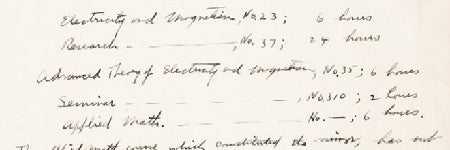 Electricity and Magnetism, No. 23; 6 hours
Research - — — —, No. 37; 24 hours
Advanced Theory of Electricity and Magnetism, No. 35; 6 hours
Seminar - — — — —, No. 310; 2 hours
Applied Math. — — — — No. —; 6 hours.
The Applied math course which constituted the minor, has not